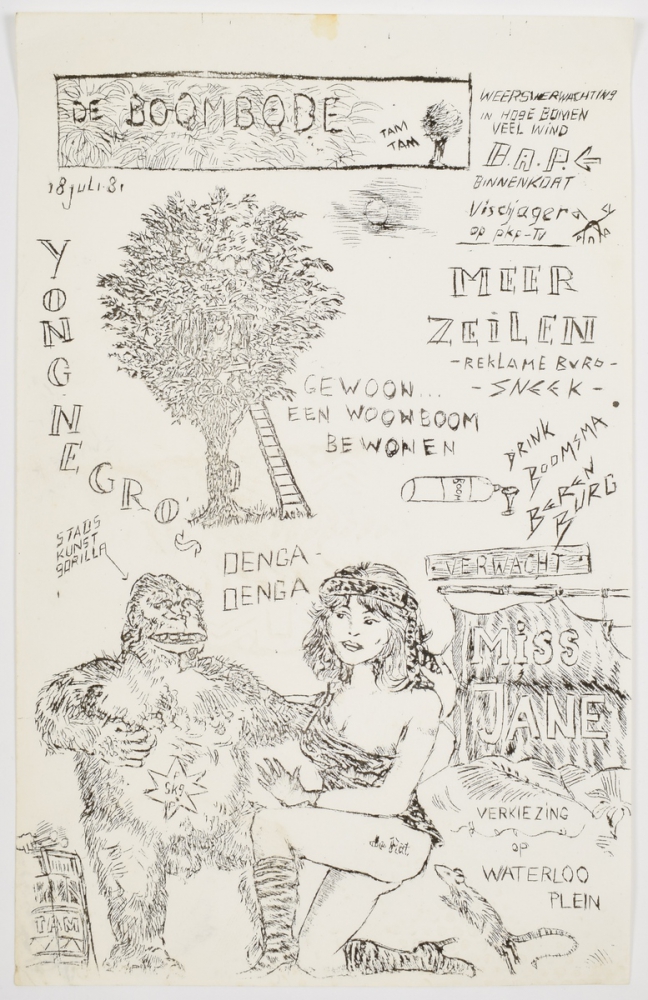 DE BOOMBODE
TAM
TAM
WEERSVERWACHTING
IN HOGE BOMEN
VEEL WIND
B.A.P.
BINNENKORT
Vischjager
op pkp-TV
18 juli.81
YONGNEGRO
MEER
ZEILEN
-REKLAME BURO-
-SNEEK-
GEWOON...
EEN WOONBOOM
BEWONEN
BOOM
DRINK
BOOMSMA
BEREN
BURG
STADS
KUNST
GORILLA
DENGA-
DENGA
VERWACHT
MISS
JANE
SKG
VERKIEZING
op
WATERLOO
PLEIN
TAM